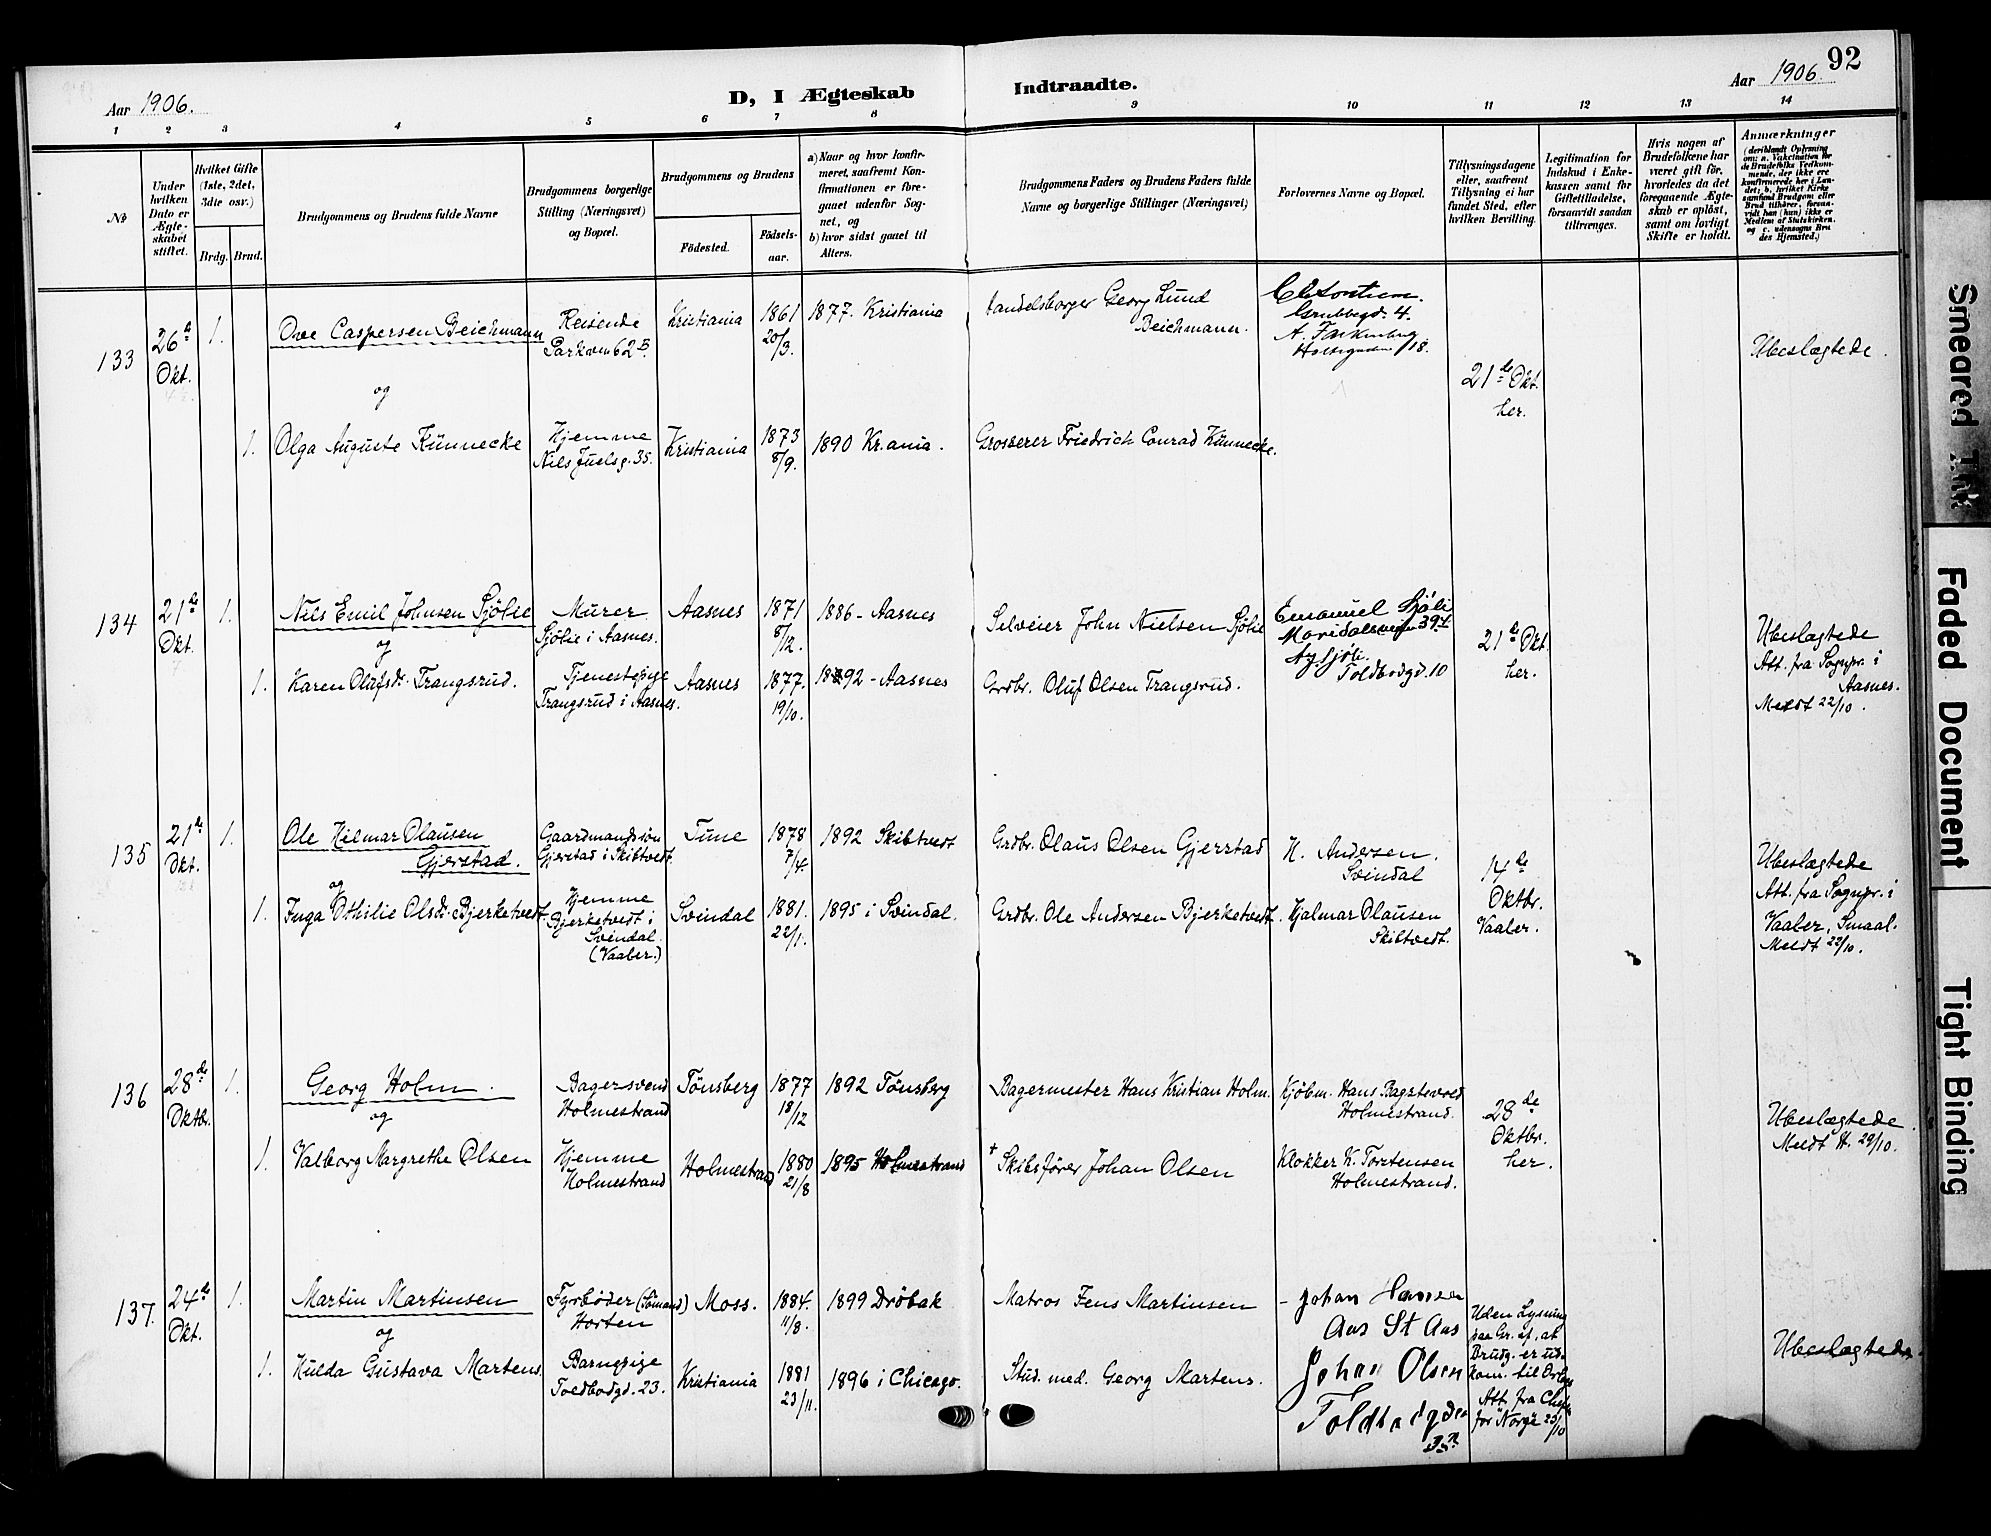 92
Aar 1906.
D, I Ægteskab Indtraadte.
Aar 1906.
1 2 3 4 5 6 7 8 9 10 11 12 13 14
No
Under hvilken Dato er Ægteskabet stiftet.
Hvilket Gifte (1ste, 2det, 3die osv.)
Brdg. Brud.
Brudgommens og Brudens fulde Navne
Brudgommens borgerlige Stilling (Næringsvei) og Bopæl.
Brudgommens og Brudens
Födested.
Födselsaar.
a) Naar og hvor konfirmeret, saafremt Konfirmationen er foregaaet udenfor Sognet, og
b) hvor sidst gaaet til Alters.
Brudgommens Faders og Brudens Faders fulde Navne og borgerlige Stillinger (Næringsvei)
Forlovernes Navne og Bopæl.
Tillysningsdagene eller, saafremt Tillysning ei har fundet Sted, efter hvilken Bevilling.
Legitimation for Indskud i Enkekassen samt for Giftetilladelse, forsaavidt saadan tiltrænges.
Hvis nogen af Brudefolkene har været gift för, hvorledes da det foregaaende Ægteskab er oplöst, samt om lovligt Skifte er holdt.
Anmærkninger
(deriblandt Oplysning om: a. Vakcination for de Brudefolks Vedkommende, der ikke ere konfirmerede her i Landet; b. hvilket Kirkesamfund Brudgom eller Brud tilhører, forsaavidt han (hun) ikke er Medlem af Statskirken. og c. udensogns Brudes Hjemsted.)
133
26de Okt.
1.
Ove Caspersen Beichmann
Reisende
Parkven 62 B.
Kristiania
1861
20/3.
1877. Kristiania
Handelsborger Georg Lund
Beichmann.
Grubbegd. 4.
A. Falkenberg
18.
21de Okt.
her.
Ubeslægtede.
og
1. Olga Auguste Künnecke
Hjemme
Nils Juels g. 35.
Kristiania
1873
8/9.
1890 Kr.ania.
Grosserer Friedrich Conrad Künnecke.
134
21de Okt.
1.
Nils Emil Johnsen Sjölie
Murer
Sjölie i Aasnes.
Aasnes
1871
8/12.
1886 - Aasnes
Selveier John Nielsen Sjölie
Emanuel Sjöli
Maridalsveien 39 4
21de Okt.
her.
Ubeslægtede
Att. fra Sognpr. i
Aasnes.
Meldt 22/10.
og
1. Karen Olufsdr. Trangsrud.
Tjenestepige
Trangsrud i Aasnes.
Aasnes
1877.
19/10.
1892 - Aasnes
Grdbr. Oluf Olsen Trangsrud.
Toldbodgd. 10
135
21de Okt.
1.
Ole Hilmar Olausen
Gjerstad.
Gaardmandssön
Gjerstad i Skibtvedt.
Tune
1878
7/4.
1892 Skibtvedt
Grdbr. Olaus Olsen Gjerstad
H. Andersen.
Svindal
14de
Oktbr.
Vaaler.
Ubeslægtede
Att. fra Sognpr. i
Vaaler, Smaal.
Meldt 22/10.
og
1. Inga Othilie Olsdr. Bjerketvedt.
Hjemme
Bjerketvedt i
Svindal.
(Vaaler.)
Svindal
1881.
22/1.
1895 i Svindal.
Grdbr. Ole Andersen Bjerketvedt.
Hjalmar Olausen
Skibtvedt.
136
28de Oktbr.
1.
Georg Holm.
Bagersvend
Holmestrand
Tönsberg
1877
18/12
1892 Tönsberg
Bagermester Hans Kristian Holm.
Kjöbm. Hans
Holmestrand.
28de
Oktbr.
her.
Ubeslægtede.
Meldt H. 29/10.
og
1. Valborg Margrethe Olsen
Hjemme
Holmestrand
Holmestrand
1880
21/8
1895 Holmestrand
† Skibsförer Johan Olsen
Klokker K. Torstensen
Holmestrand.
137.
24de Okt.
1.
Martin Martinsen
Fyrböder (Sömand)
Horten
Moss.
1884.
11/8.
1899 Dröbak
Matros Jens Martinsen
- Johan Hansen
Aas St Aas
Uden Lysning
paa Gr. af, at
Brudg. er ud-
kom. til Orlogs
Att. fra Chefen
for "Norge" 23/10
Ubeslægtede.
og
1. Hulda Gustava Martens.
Barnepige
Toldbodgd. 23.
Kristiania
1881
23/11.
1896 i Chicago.
Stud. med. Georg Martens.
Johan Olsen
Smeared Ink
Faded Document
Tight Binding